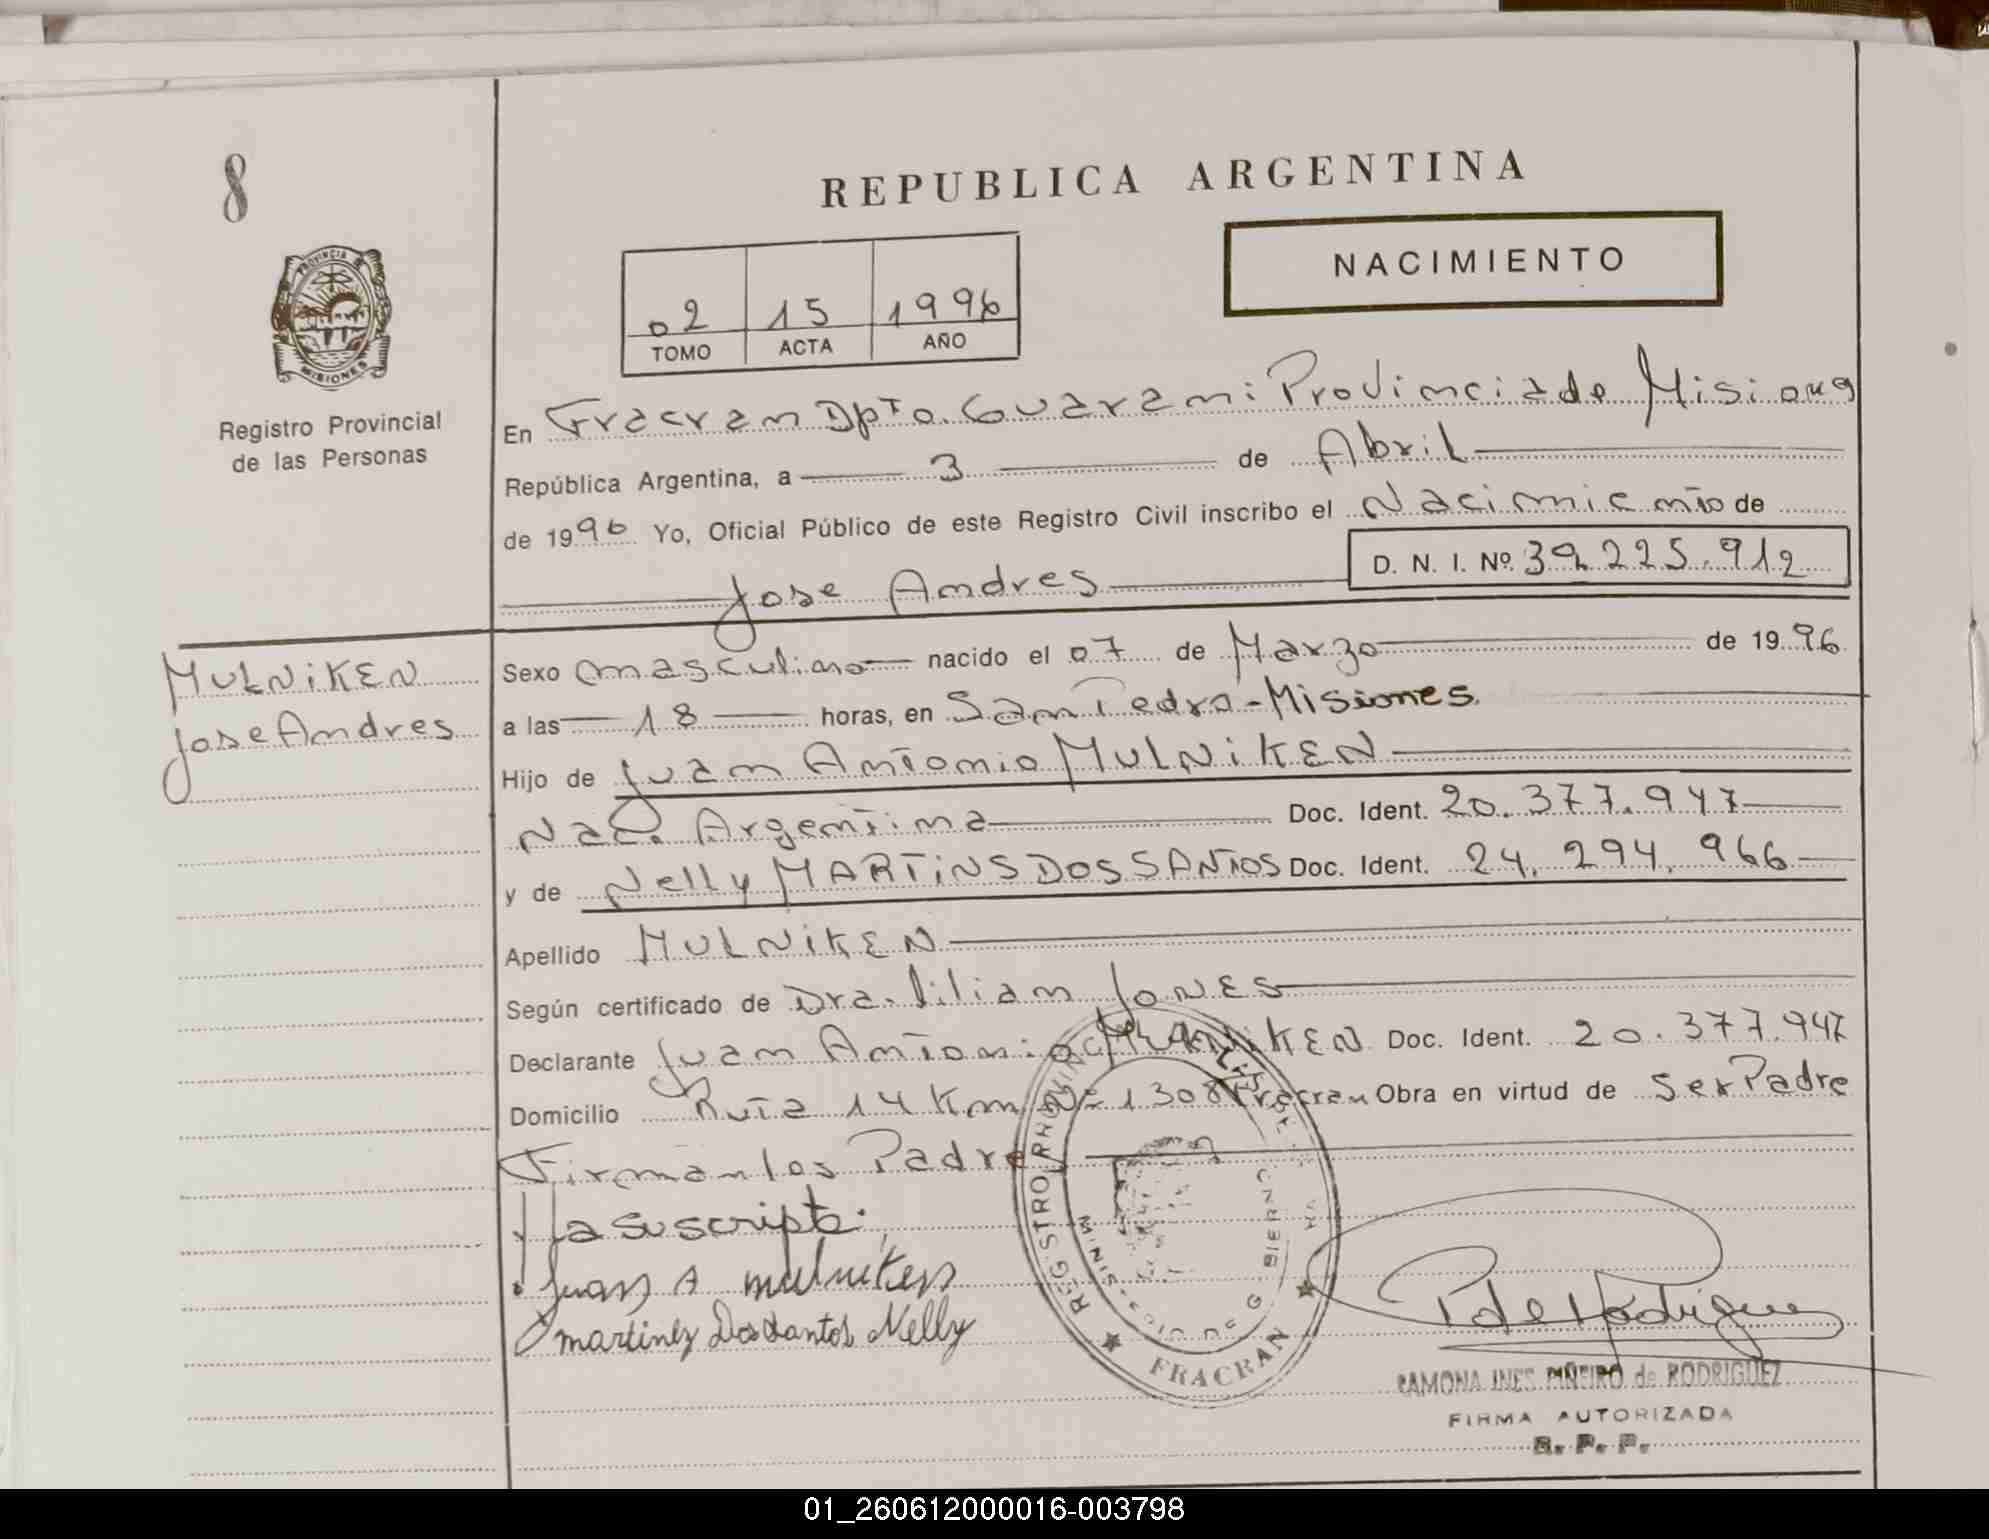 8
REPUBLICA ARGENTINA
NACIMIENTO
02 15 1996
TOMO ACTA AÑO
PROVINCIA DE MISIONES
Registro Provincial
de las Personas
En Fracran Dpto. Guarani Provincia de Misiones
República Argentina, a 3 de Abril
de 1996 Yo, Oficial Público de este Registro Civil inscribo el Nacimiento de
D. N. I. Nº. 39.225.912
Jose Andres
MULNiKEN
Jose Andres
Sexo masculino nacido el 07 de Marzo de 1996
a las 18 horas, en San Pedro - Misiones.
Hijo de Juan Antonio MULNiKEN
Nac. Argentina Doc. Ident. 20.377.947
y de Nelly MARTiNS DOS SANTOS Doc. Ident. 24.294.966
Apellido MULNiKEN
Según certificado de Dra. Lilian JONES
Declarante Juan Antonio MULNiKEN Doc. Ident. 20.377.947
Domicilio Ruta 14 Km Nº 1308 Fracran Obra en virtud de ser Padre
Firman los Padre
y la suscripta.
Juan A mulniken
martinez Dos Santos Nelly
REGISTRO PROVINCIAL DE LAS
FRACRAN
RAMONA INES PIÑEIRO de RODRIGUEZ
FIRMA AUTORIZADA
R. P. P.
01_260612000016-003798